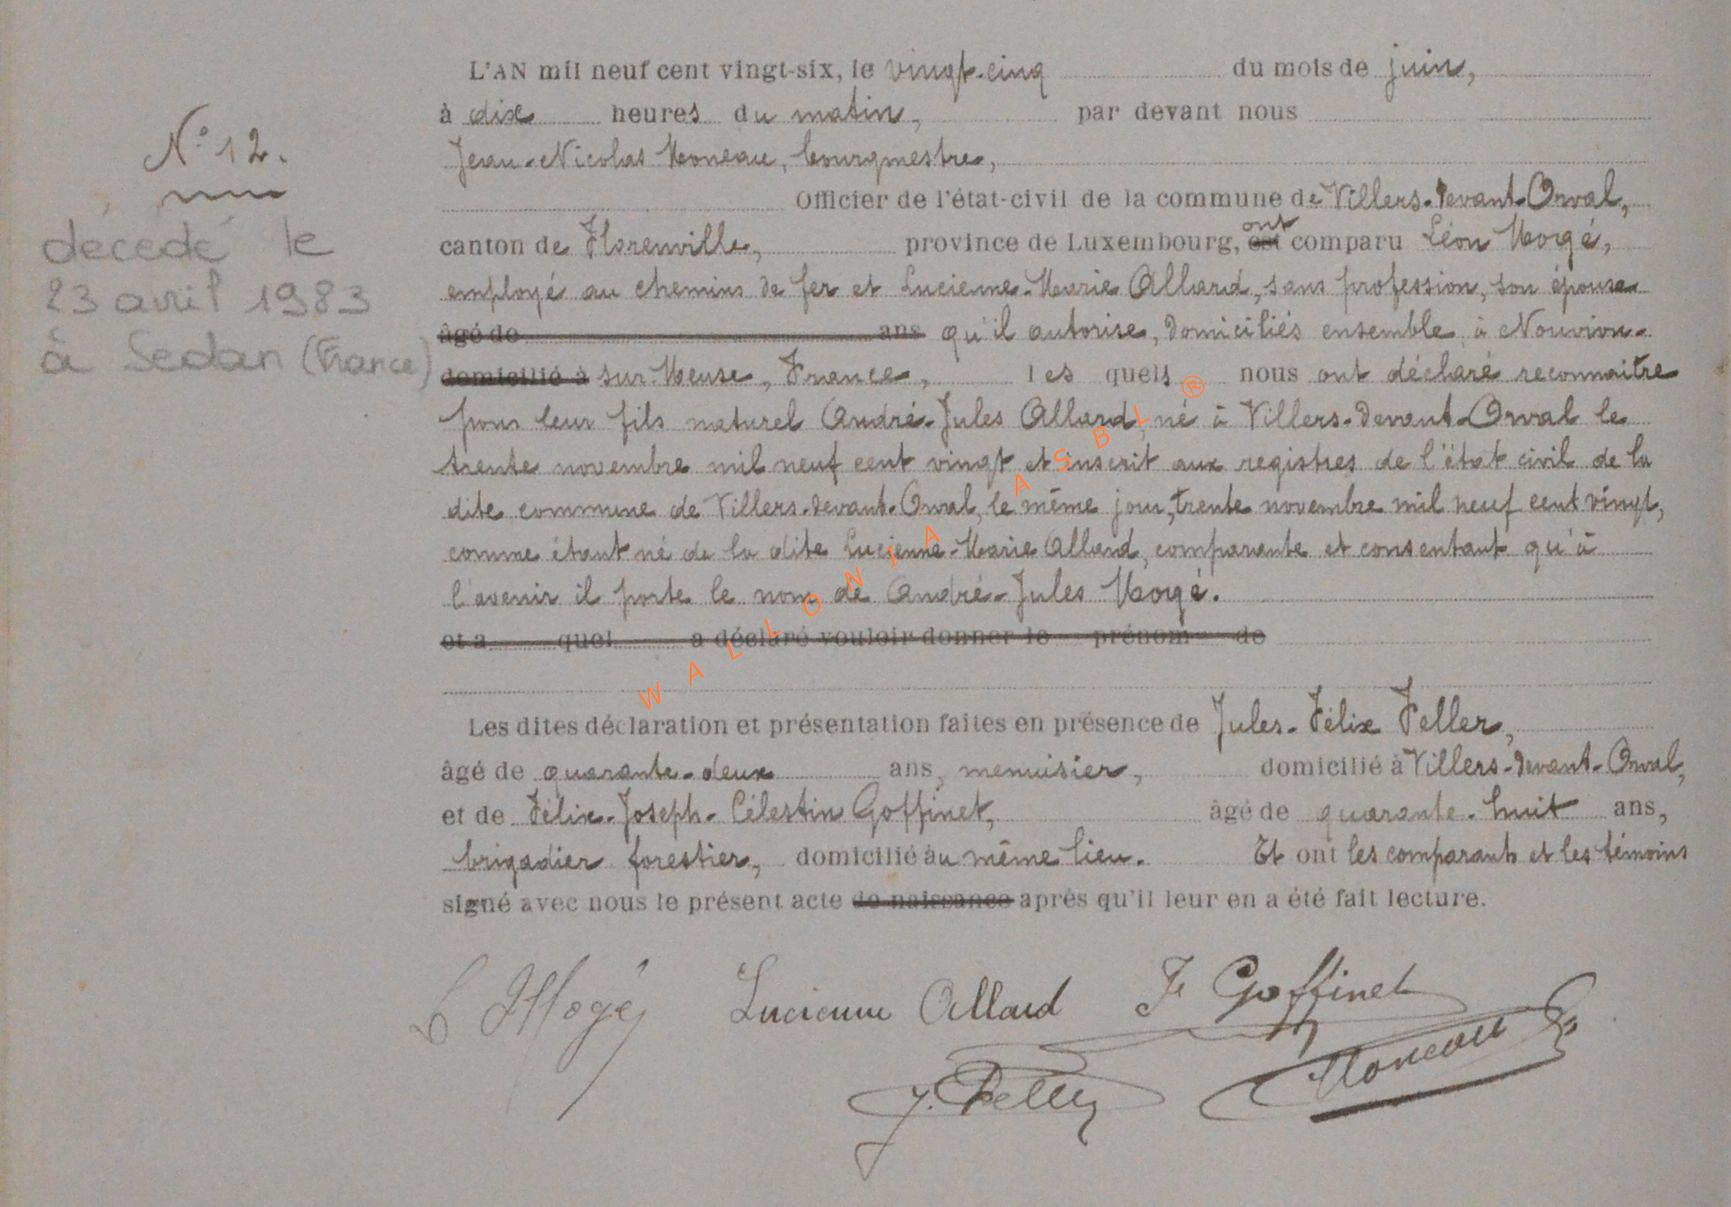 N° 12.
décédé le
23 avril 1983
à Sedan (France)
L'AN mil neuf cent vingt-six, le vingt-cinq du mois de juin,
à dix heures du matin, par devant nous
Jean-Nicolas Moneau, bourgmestre,
Officier de l'état-civil de la commune de Villers-devant-Orval,
ont
canton de Florenville, province de Luxembourg, est comparu Léon Mogé,
employé au chemins de fer et Lucienne-Marie Allard, sans profession, son épouse
âgé de ans qu'il autorise, domiciliés ensemble à Nouvion-
domicilié à sur-Meuse, France, les quels nous ont déclaré reconnaitre
pour leur fils naturel André-Jules Allard, né à Villers-devant-Orval le
trente novembre mil neuf cent vingt et inscrit aux registres de l'état civil de la
dite commune de Villers-devant-Orval, le même jour, trente novembre mil neuf cent vingt,
comme étant né de la dite Lucienne-Marie Allard, comparante et consentant qu'à
l'avenir il porte le nom de André-Jules Mogé.
et a quel a déclaré vouloir donner le prénom de
Les dites déclaration et présentation faites en présence de Jules-Félix Feller,
âgé de quarante-deux ans, menuisier, domicilié à Villers-devant-Orval,
et de Félix-Joseph-Célestin Goffinet, âgé de quarante-huit ans,
brigadier forestier, domicilié au même lieu. Et ont les comparants et les témoins
signé avec nous le présent acte de naissance après qu'il leur en a été fait lecture.
L Mogé Lucienne Allard F Goffinet
J. Feller Moneau
WALLONIA ASBL ®